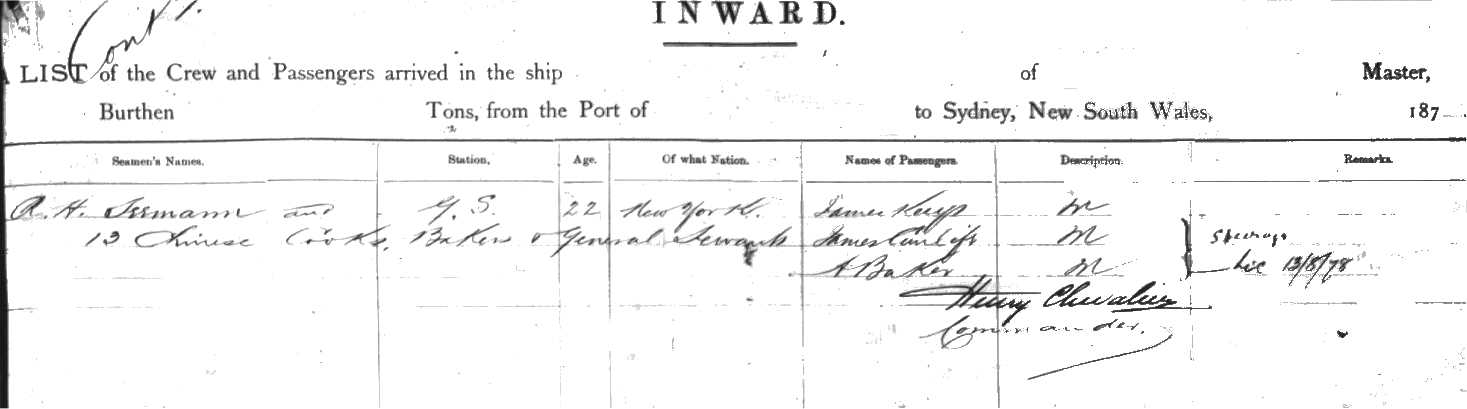 Cont.
INWARD.
A LIST of the Crew and Passengers arrived in the ship of Master,
Burthen Tons, from the Port of to Sydney, New South Wales, 187
Seamen's Names. Station. Age. Of what Nation. Names of Passengers. Description. Remarks.
R. H. and G. S. 22 New York. James M
13 Chinese Cooks, Bakers & General Servants James M Steerage
A Baker M 13/8/78
Henry Chevalier
Commander.